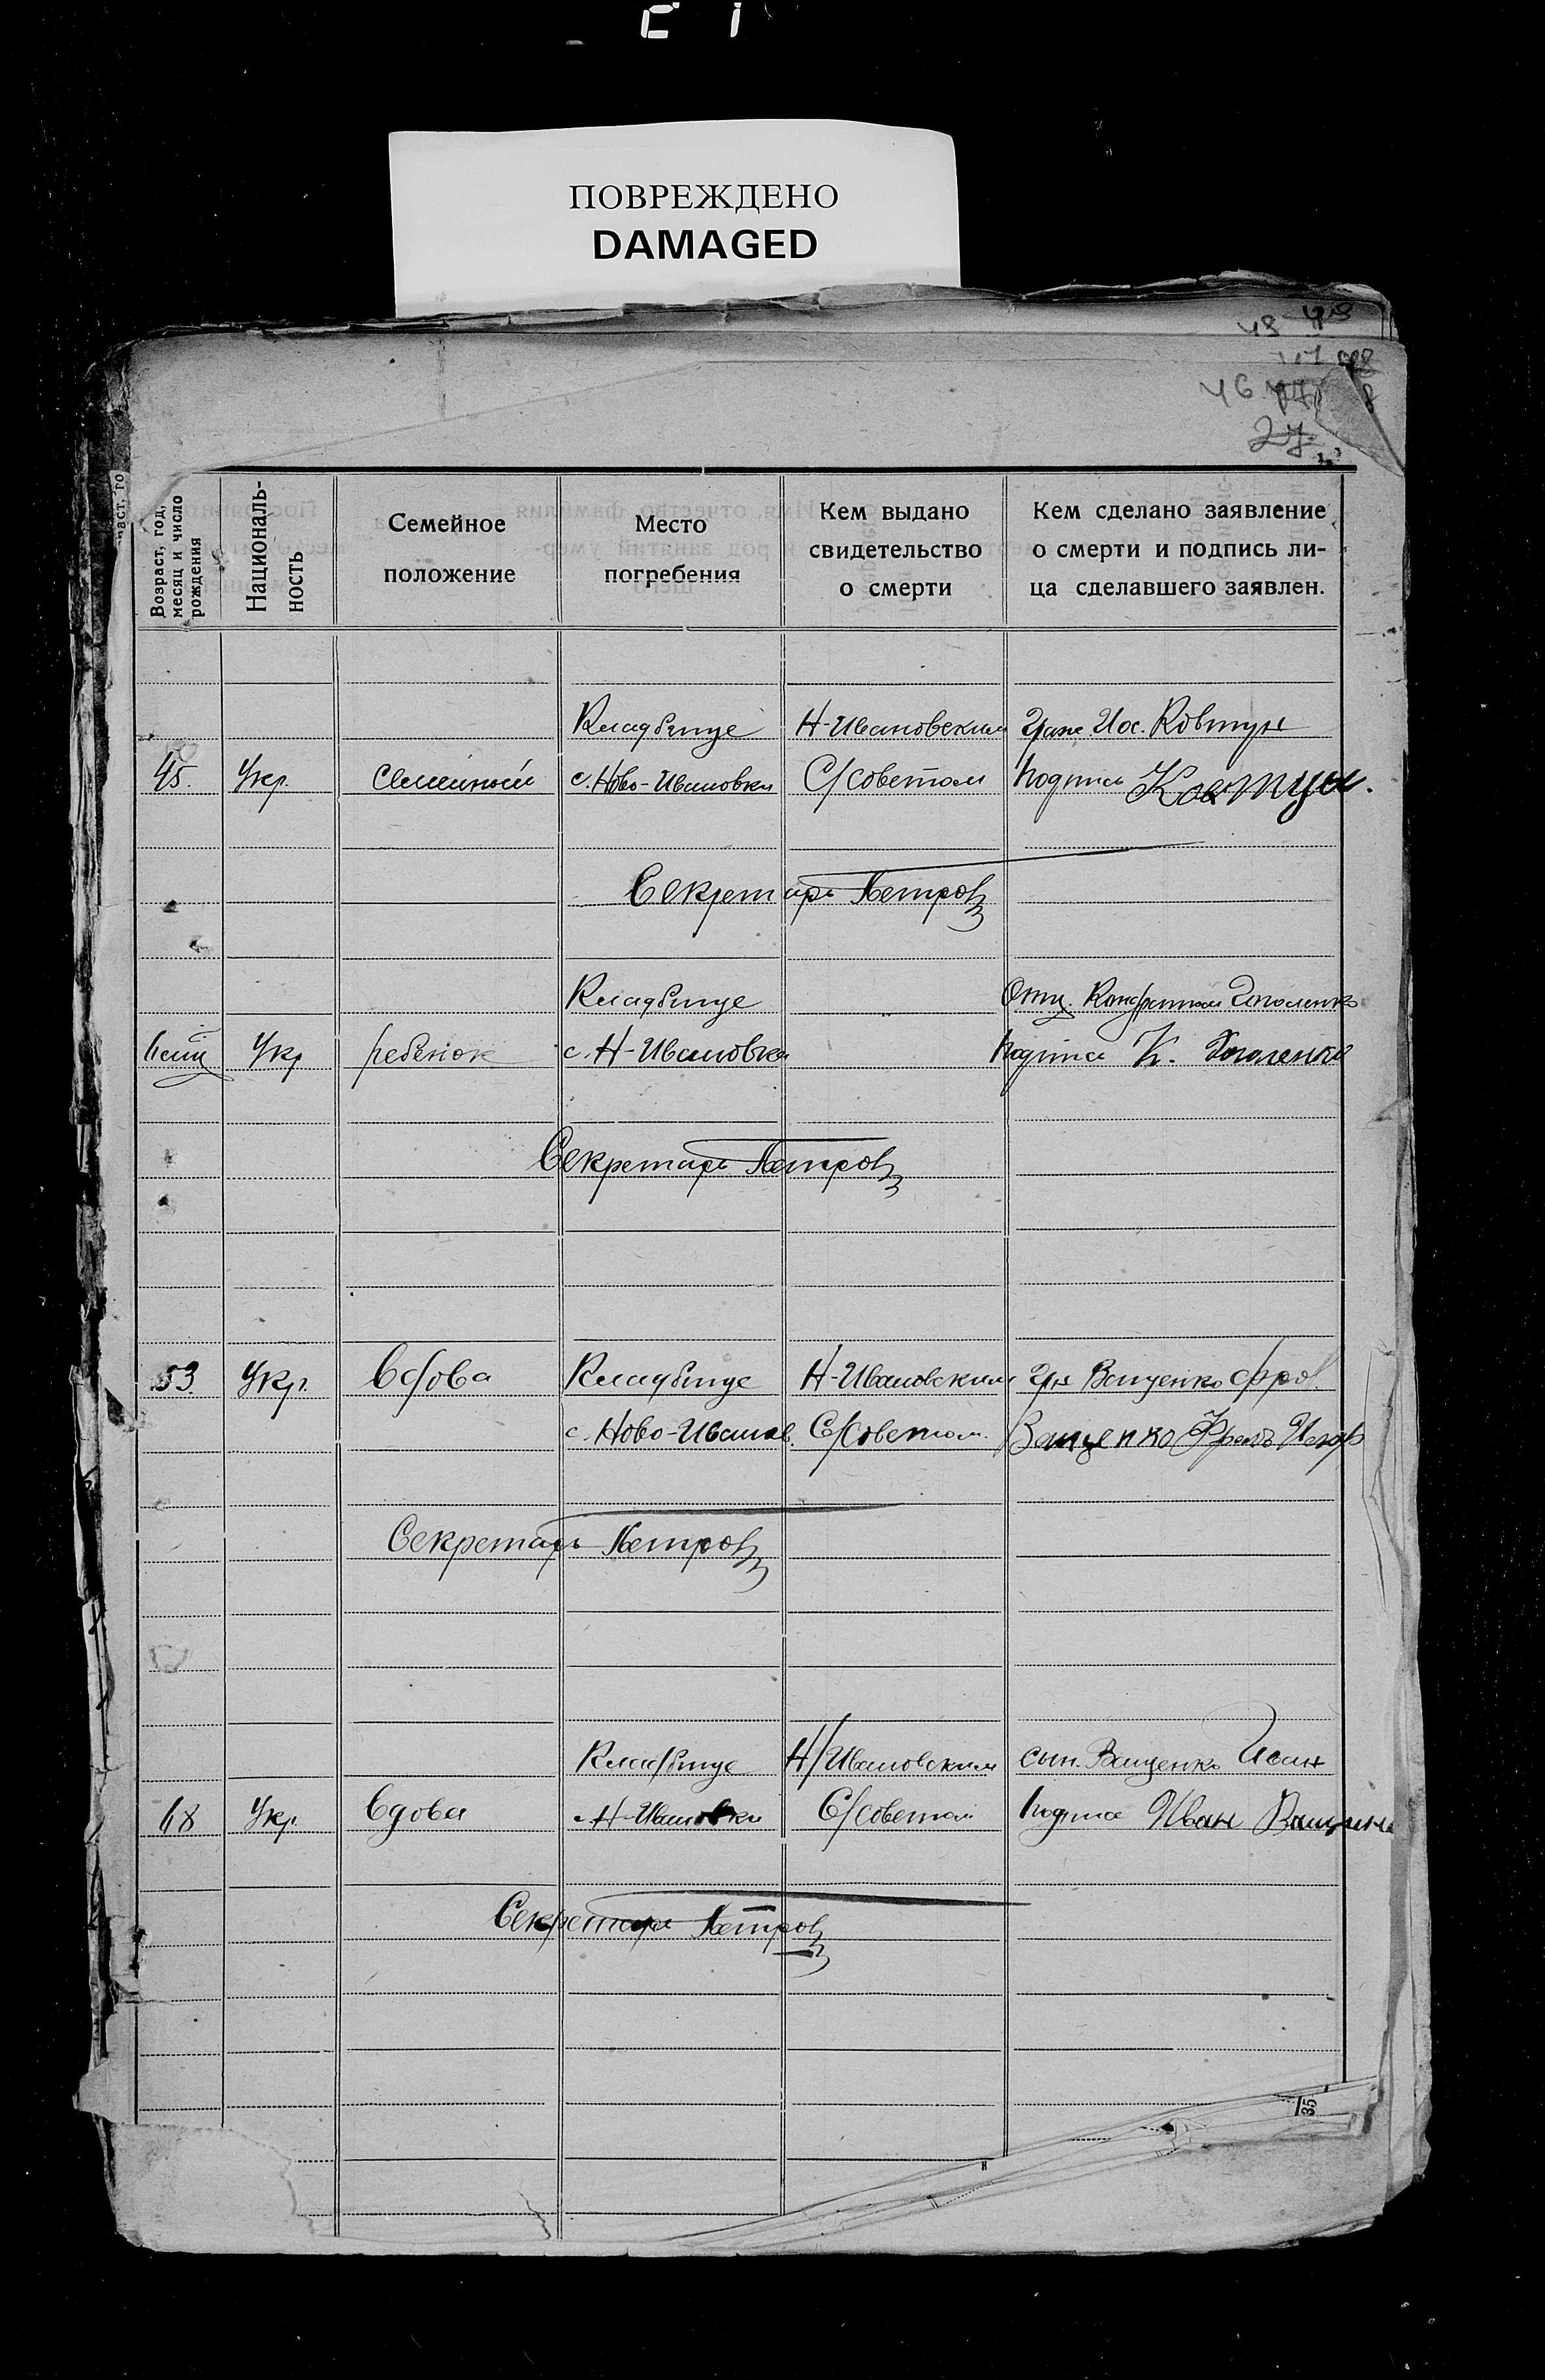 ПОВРЕЖДЕНО
DAMAGED
Возраст, год,
месяц и число
рождения
Националь-
ность
Семейное
положение
Место
погребения
Кем выдано
свидетельство
о смерти
Кем сделано заявление
о смерти и подпись ли-
ца сделавшего заявлен.
Кладбище Н-Ивановским Граж. Иос. Ковтун
45. Укр. Семейный с. Ново-Ивановки С/советом Подпись Ковтун.
Секретарь Петров
Кладбище Отец
Укр ребенок с. Н-Ивановка Подпись К.
Секретарь Петров
53 Укр. Вдова Кладбище Н-Ивановским Гр Ващенко Фрол.
с. Ново-Иванов. С/Советом. Ващенко Фрол
Секретарь Петров
Кладбище Н/Ивановским сын. Ващенко Иван
68 Укр. Вдова с Н-Ивановки С/советом Подпись Иван Ващенко
Секретарь Петров
35